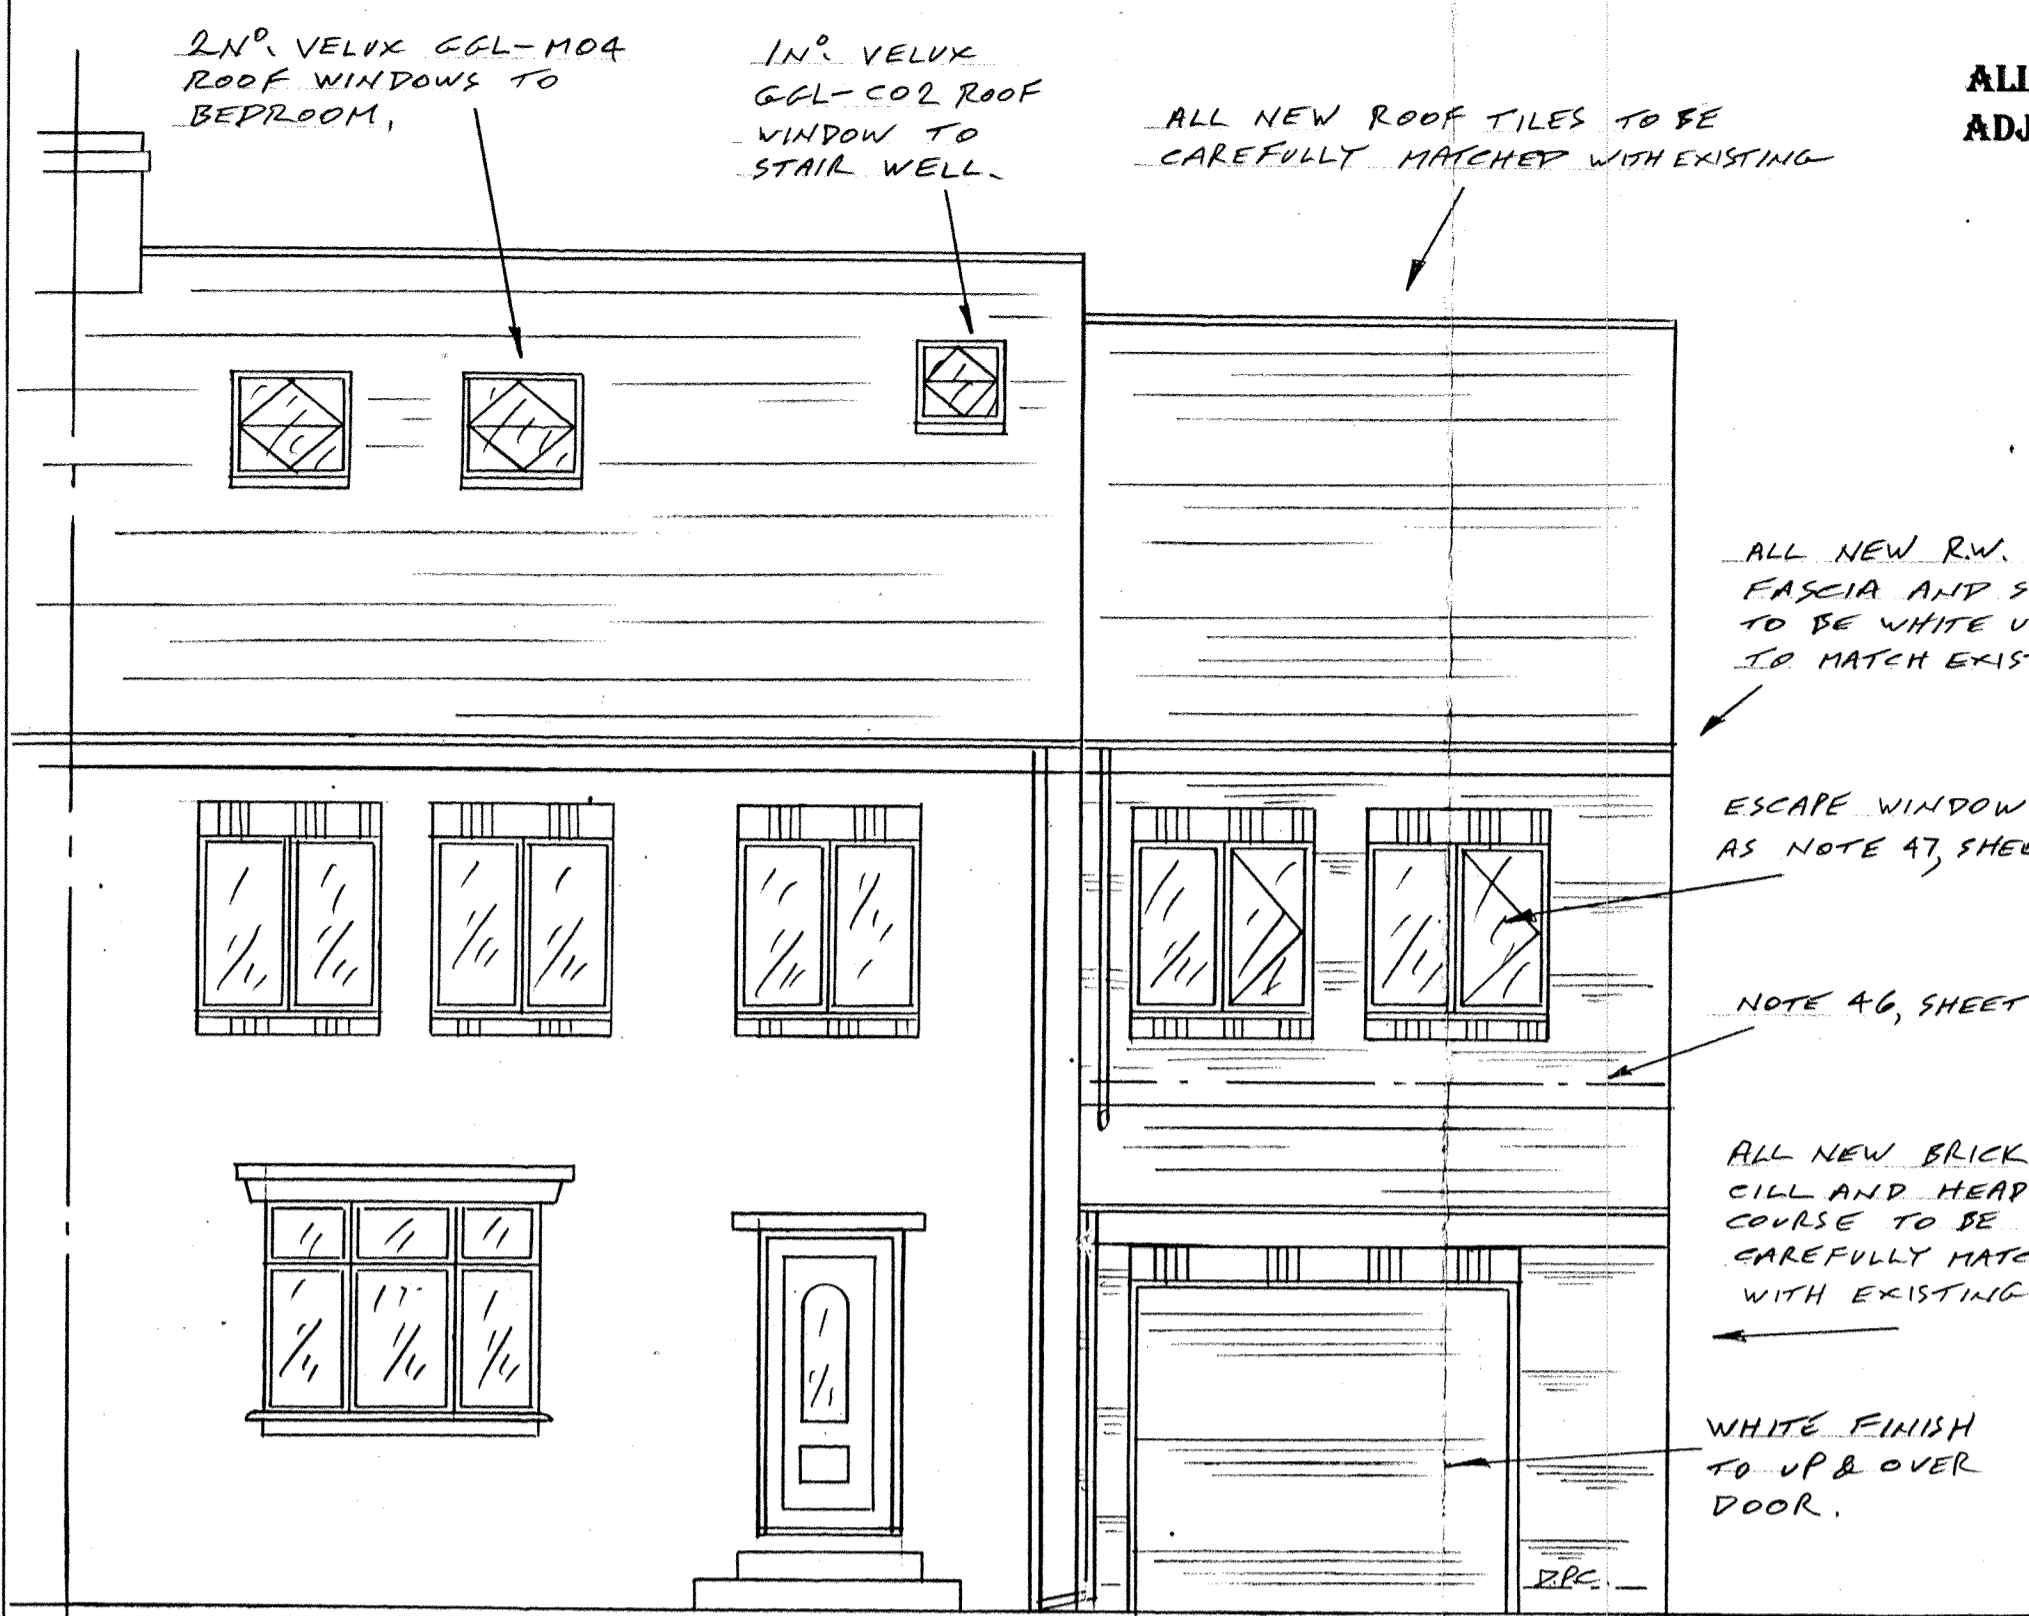 2Nº. VELUX GGL-M04
ROOF WINDOWS TO
BEDROOM,
1Nº. VELUX
GGL-C02 ROOF
WINDOW TO
STAIR WELL.
ALL NEW ROOF TILES TO BE
CAREFULLY MATCHED WITH EXISTING
ALL
ADJ
ALL NEW R.W.
FASCIA AND S
TO BE WHITE U
TO MATCH EXIST
ESCAPE WINDOW
AS NOTE 47, SHEE
NOTE 46, SHEET
ALL NEW BRICK
CILL AND HEAD
COURSE TO BE
CAREFULLY MATC
WITH EXISTING
WHITE FINISH
TO UP & OVER
DOOR.
D.P.C.